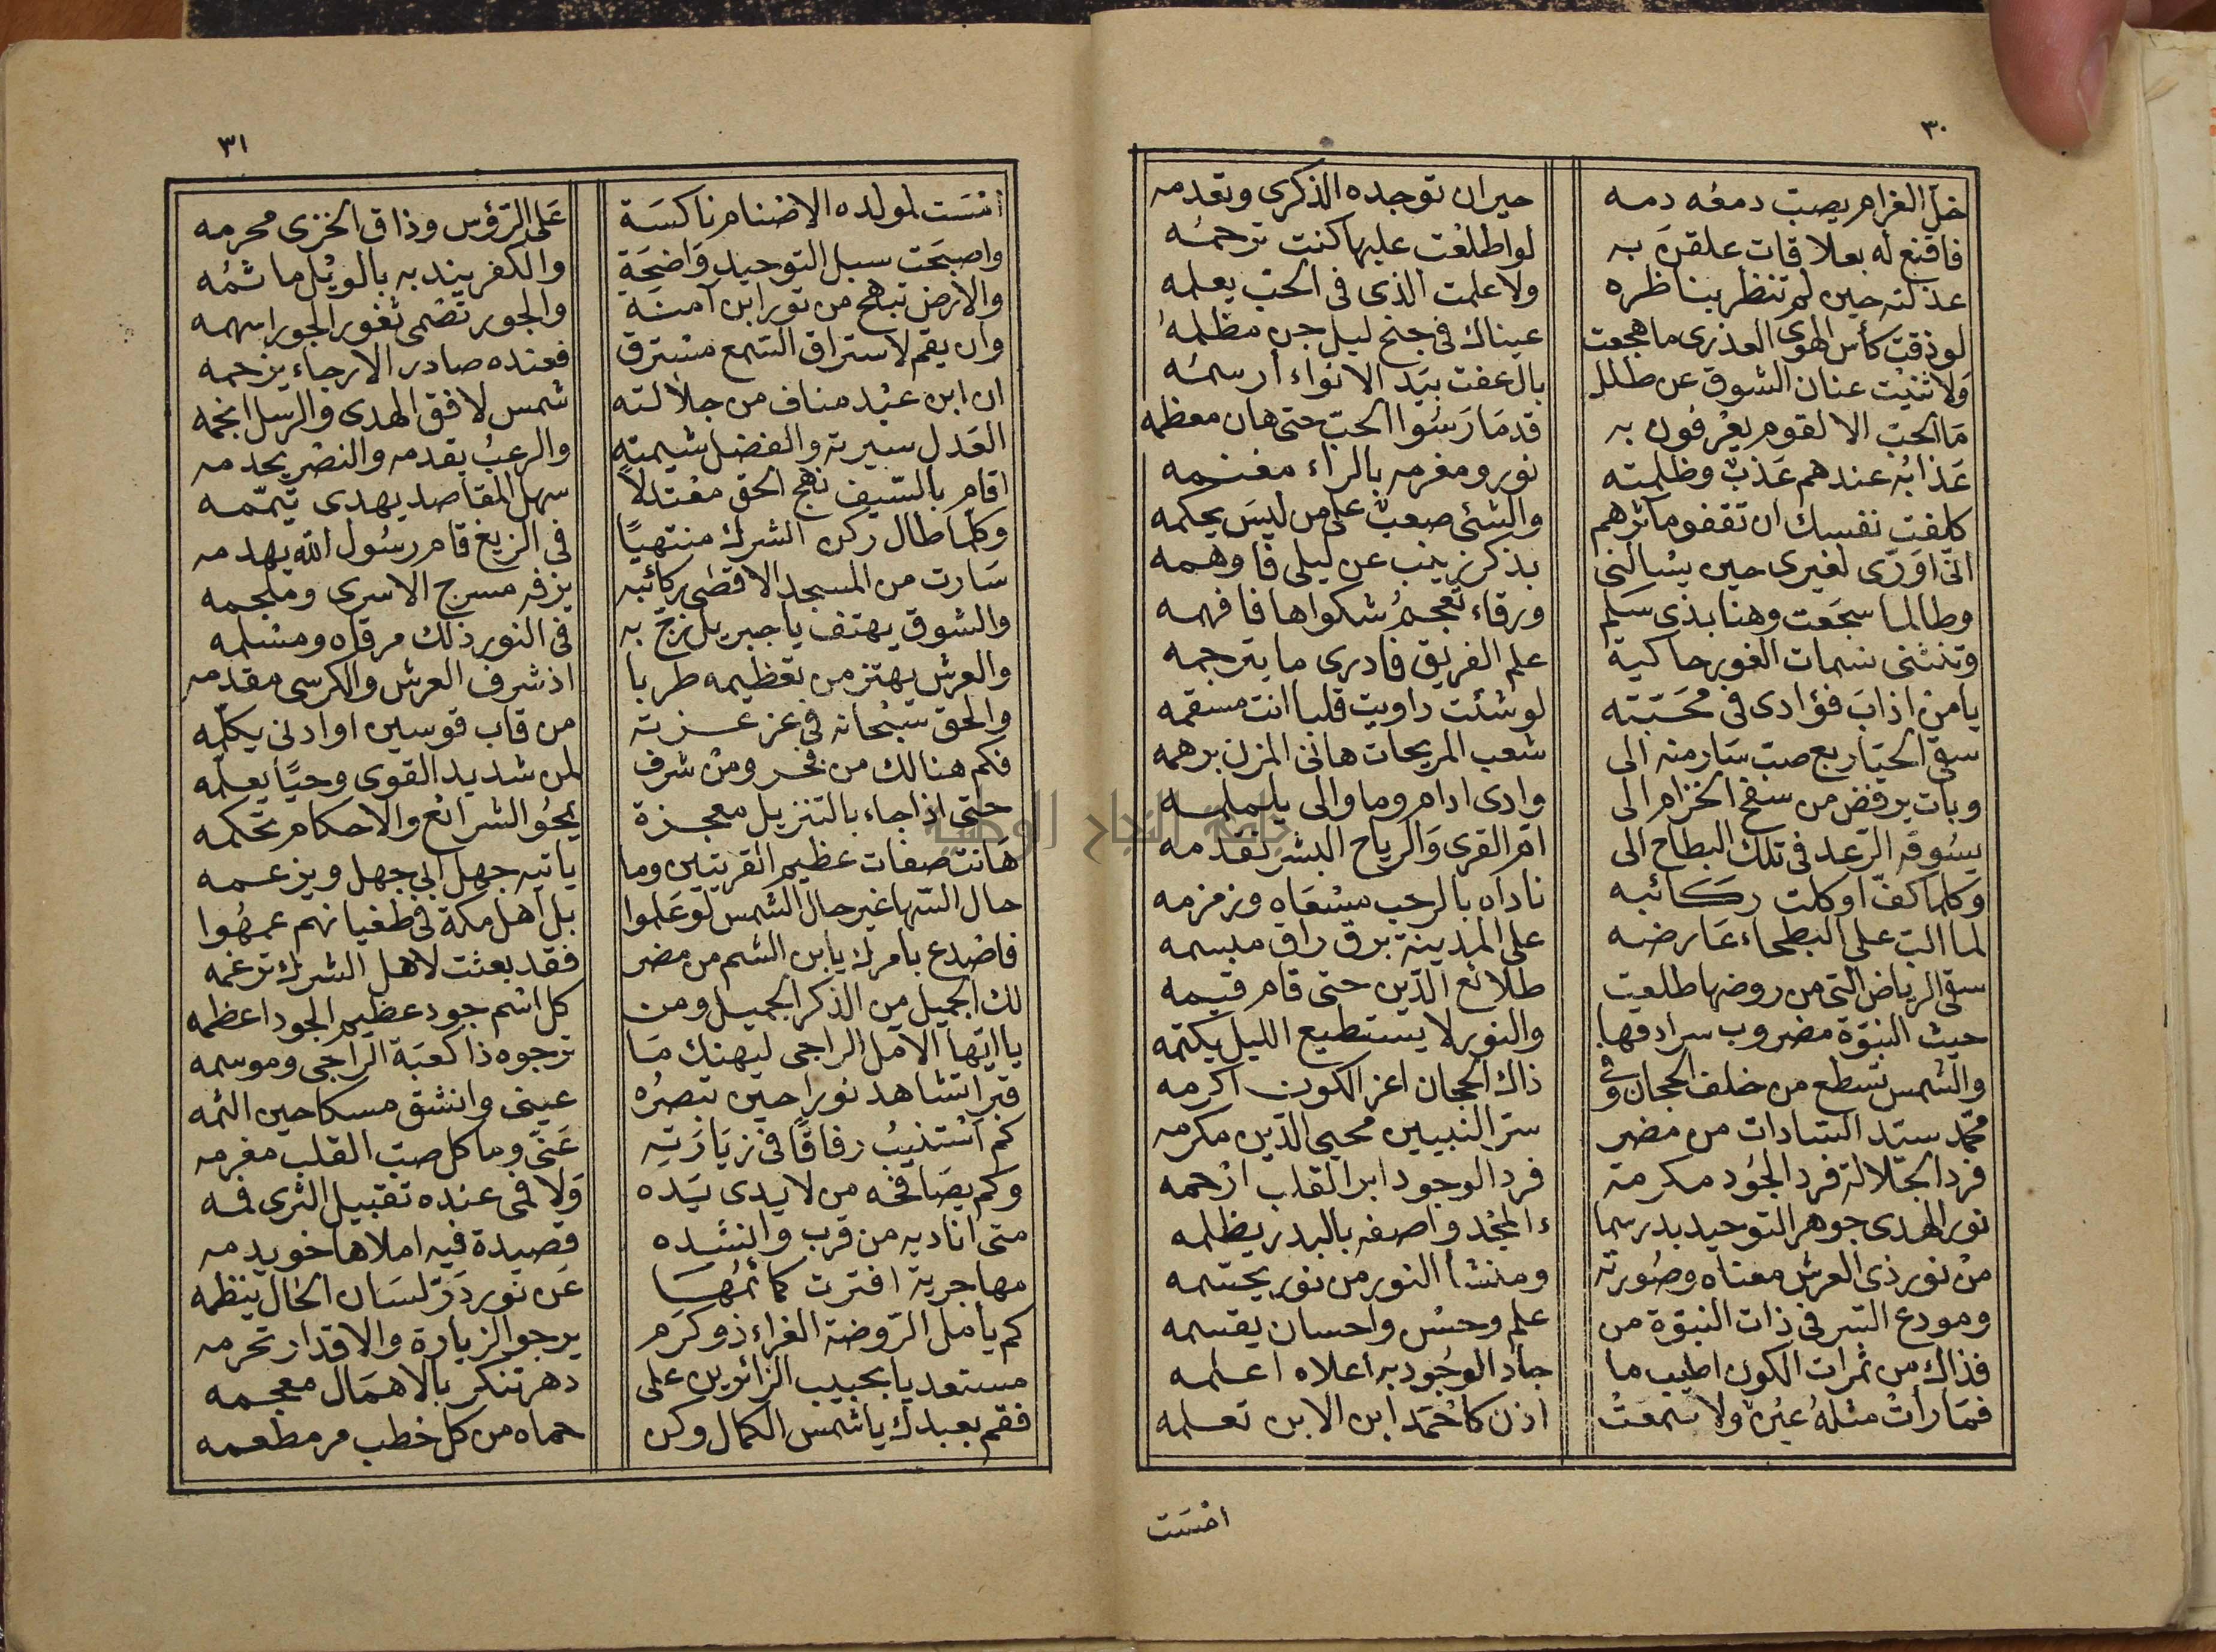 ٣٠
خل الغرام يصب دمعه دمه حيران توجده الذكرى وتعدمه
فاقنع له بعلاقات علقن به لو اطلعت عليها كنت ترحمه
عذلته حين لم تنظر بناظره ولا علمت الذى فى الحب يعلمه
لو ذقت كأس الهوى العذرى ما هجعت عيناك فى جنح ليل جن مظلمه
ولا ثنيت عنان الشوق عن طلل بال عفت بيد الانواء أرسمه
ما الحب الا لقوم يعرفون به قد مارسوا الحب حتى هان معظمه
عذابه عندهم عذب وظلمته نور ومغرمه بالراء مغنمه
كلفت نفسك ان تقفو مآثرهم والشئ صعب على من ليس يحكمه
انى اورّى لغيرى حين يسالنى بذكر زينب عن ليلى فاوهمه
وطالما سجعت وهنا بذى سلم ورقاء تعجم شكواها فافهمه
وتنثنى نسمات الغور حاكية علم الفريق فادرى ما يترجمه
يا من اذاب فؤادى فى محبته لو شئت داويت قلبا انت مسقمه
سقى الحيا ربع صب سار منه الى شعب المريحات هانى المزن برهمه
وبات يرفض من سفح الخزام الى وادى ادام وما والى يلملمه
يسوقه الرعد فى تلك البطاح الى ام القرى والرياح البشر تقدمه
وكلما كف او كلت ركائبه ناداه بالرحب مسعاه وزمزمه
لما البت على البطحاء عارضه على المدينة برق راق مبسمه
سقى الرياض التى من روضها طلعت طلائع الدين حتى قام قيمه
حيث النبوة مضروب سرادقها والنور لا يستطيع الليل يكتمه
والشمس تسطع من خلف الحجان وفى ذاك الحجان اعز الكون اكرمه
محمد سيد السادات من مضر سر النبيين محيى الدين مكرمه
فرد الجلالة فرد الجود مكرمة فرد الوجود ابر القلب ارحمه
نور الهدى جوهر التوحيد بدر سما ء المجد واصفه بالبدر يظلمه
من نور ذى العرش معناه وصورته ومنشأ النور من نور يجسمه
ومودع السر فى ذات النبوة من علم وحسن واحسان يقسمه
فذاك من ثمرات الكون اطيب ما جاد الوجود به أعلاه اعلمه
فما رأت مثله عين ولا سمعت اذن كاحمد اين الاين تعلمه
امست
٣١
امست لمولده الاصنام ناكسة على الرؤس وذاق الخزى مجرمه
واصبحت سبل التوحيد واضحة والكفر يندبه بالويل ماتمه
والارض تبهج من نور ابن آمنة والجور تصمى ثغور الجور اسهمه
وان يقم لاستراق السمع مسترق فعنده صادر الارجاء يزحمه
ان ابن عبد مناف من جلالته شمس لافق الهدى والرسل انجمه
العدل سيرته والفضل شيمته والرعب يقدمه والنصر يخدمه
اقام بالسيف نهج الحق معتدلا سهل المقاصد يهدى تيممه
وكلما طال ركن الشرك منتهيا فى الزيغ قام رسول الله يهدمه
سارت من المسجد الاقصى ركائبه يزفه مسرج الاسرى وملجمه
والشوق يهتف يا جبريل زج به فى النور ذلك مرقاه ومسلمه
والعرش يهتز من تعظيمه طربا اذ شرف العرش والكرسى مقدمه
والحق سبحانه فى عز عزته من قاب قوسين او ادنى يكلمه
فكم هنالك من فخر ومن شرف لمن شديد القوى وحيا يعلمه
حتى اذا جاء بالتنزيل معجزة يمحو الشرائع والاحكام تحكمه
هانت صفات عظيم القريتين وما ياتيه جهل ابى جهل ويزعمه
حال السها غير حال الشمس لو علموا بل اهل مكة فى طغيانهم عمهوا
فاصدع بامرك يا ابن الشم من مضر فقد بعثت لاهل الشرك ترغمه
لك الجميل من الذكر الجميل ومن كل اسم جود عظيم الجود اعظمه
يا ايها الآمل الراجى ليهنك ما ترجوه ذا كعبة الراجى وموسمه
قبرا تشاهد نورا حين تبصره عينى وانشق مسكا حين الثمه
كم استنيب رفاقا فى زيارته عنى وما كل صب القلب مغرمه
وكم يصافحه من لا يدى يده ولا فمى عنده تقبيل الثرى فمه
متى اناديه من قرب وانشده قصيدة فيه املاها خويدمه
مهاجرية افترت كمائمها عن نور در لسان الحال ينظمه
كم يأمل الروضة الغراء ذو كرم يرجو الزيارة والاقدار تحرمه
مستعديا بحبيب الزائرين على دهر تنكر بالاهمال معجمه
فقم بعبدك يا شمس الكمال وكن حماه من كل خطب مر مطعمه